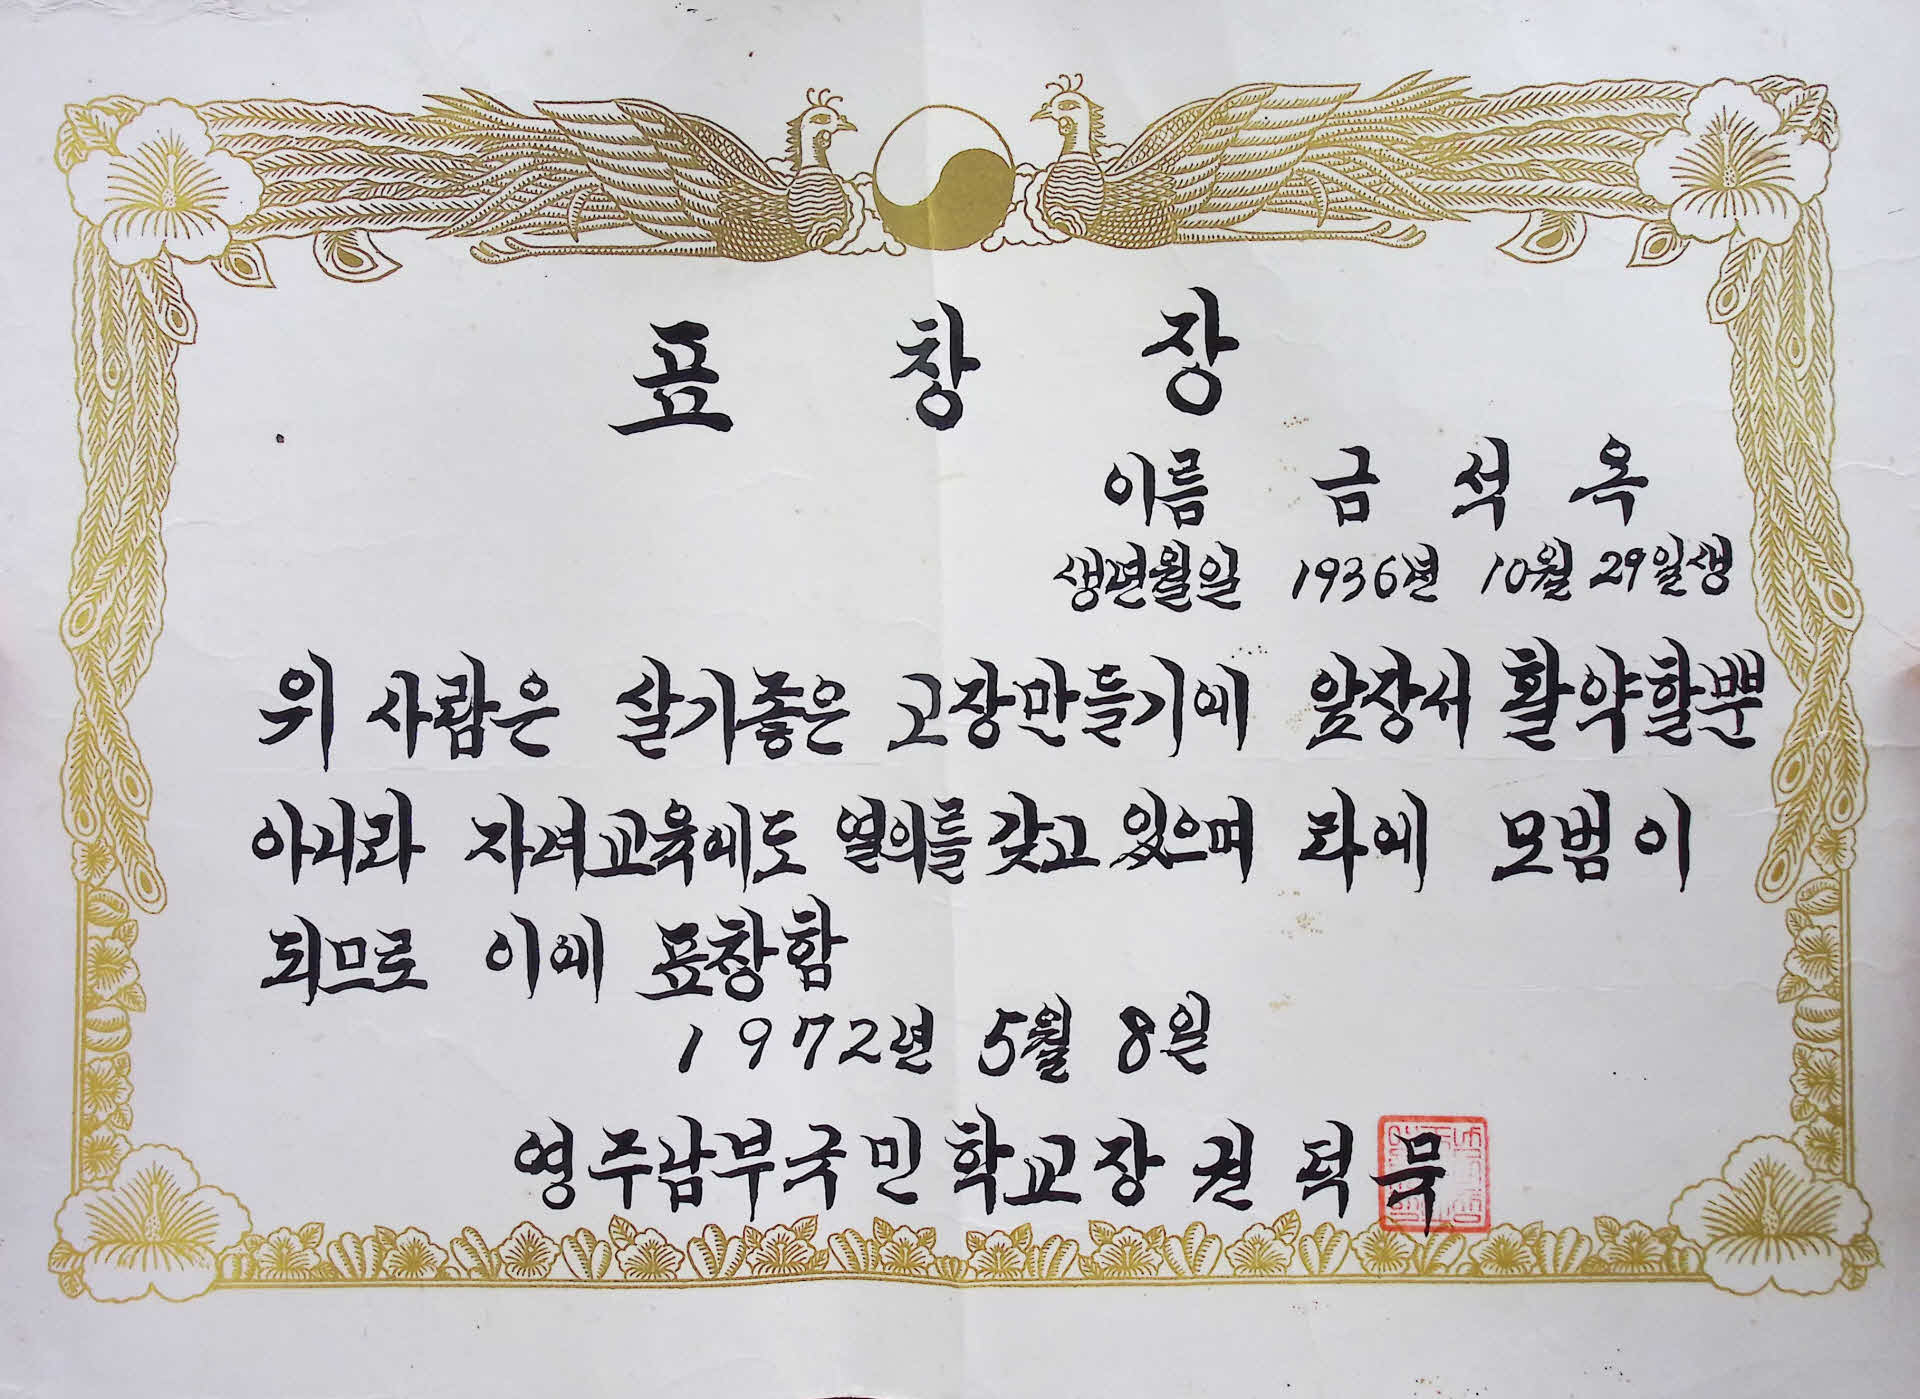 표 창 장
이름 금 석 옥
생년월일 1936년 10월 29일생
위 사람은 살기좋은 고장만들기에 앞장서 활약할뿐
아니라 자녀교육에도 열의를 갖고 있으며 라에 모범이
되므로 이에 표창함
1972년 5월 8일
영주남부국민학교장 권 덕 묵